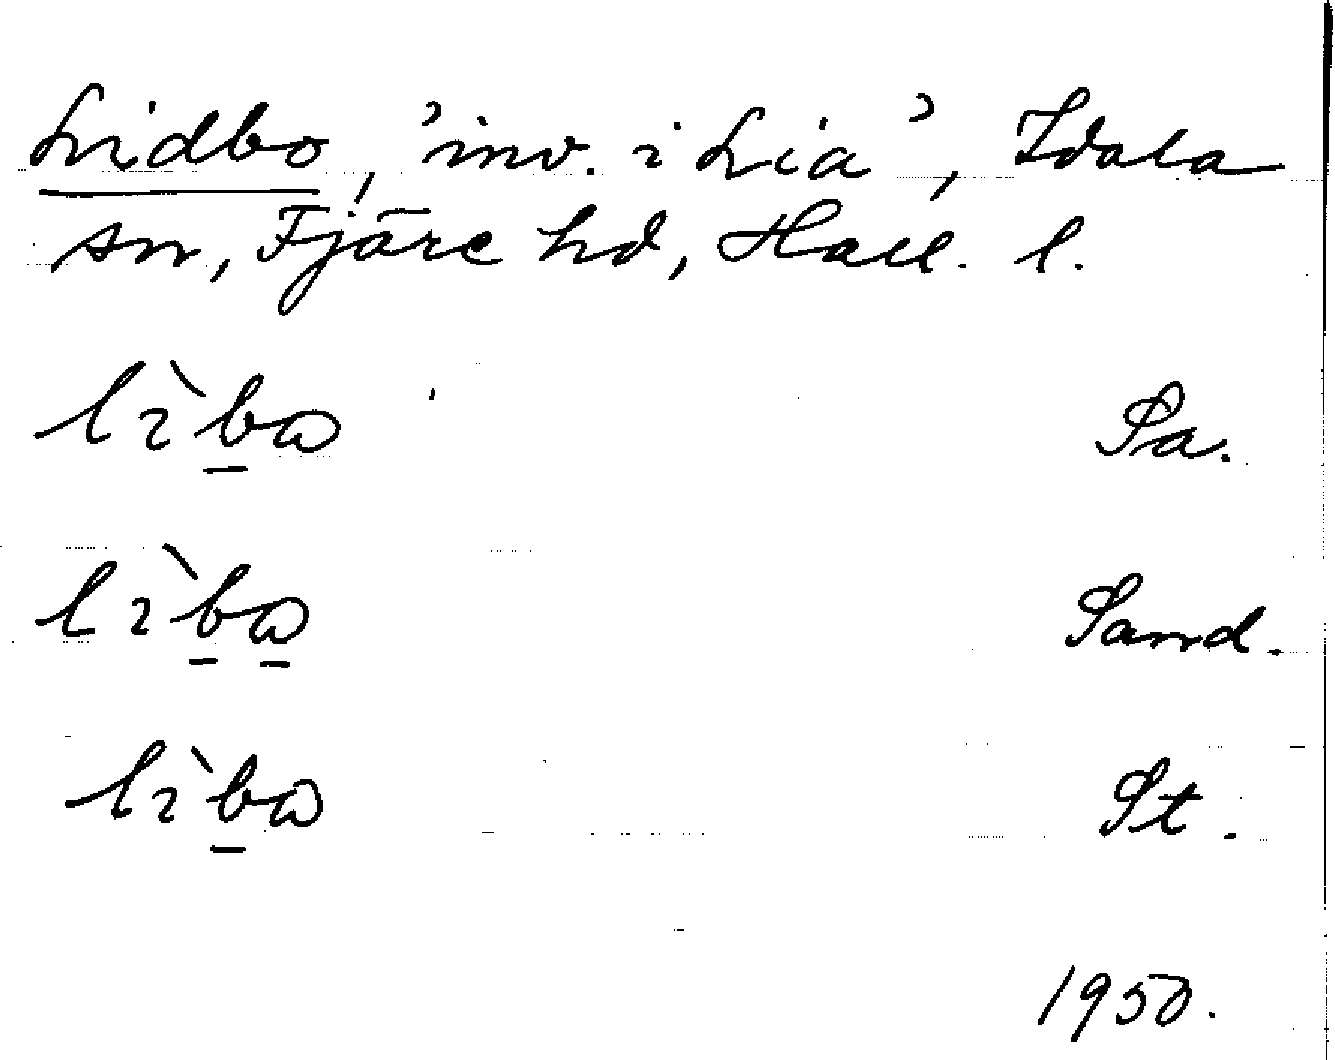 Lidbo, 'inv. i Lia', Idala
sn, Fjäre hd, Hall. l.
lìbω Sa.
lìbω Sand.
lìbω St.
1950.